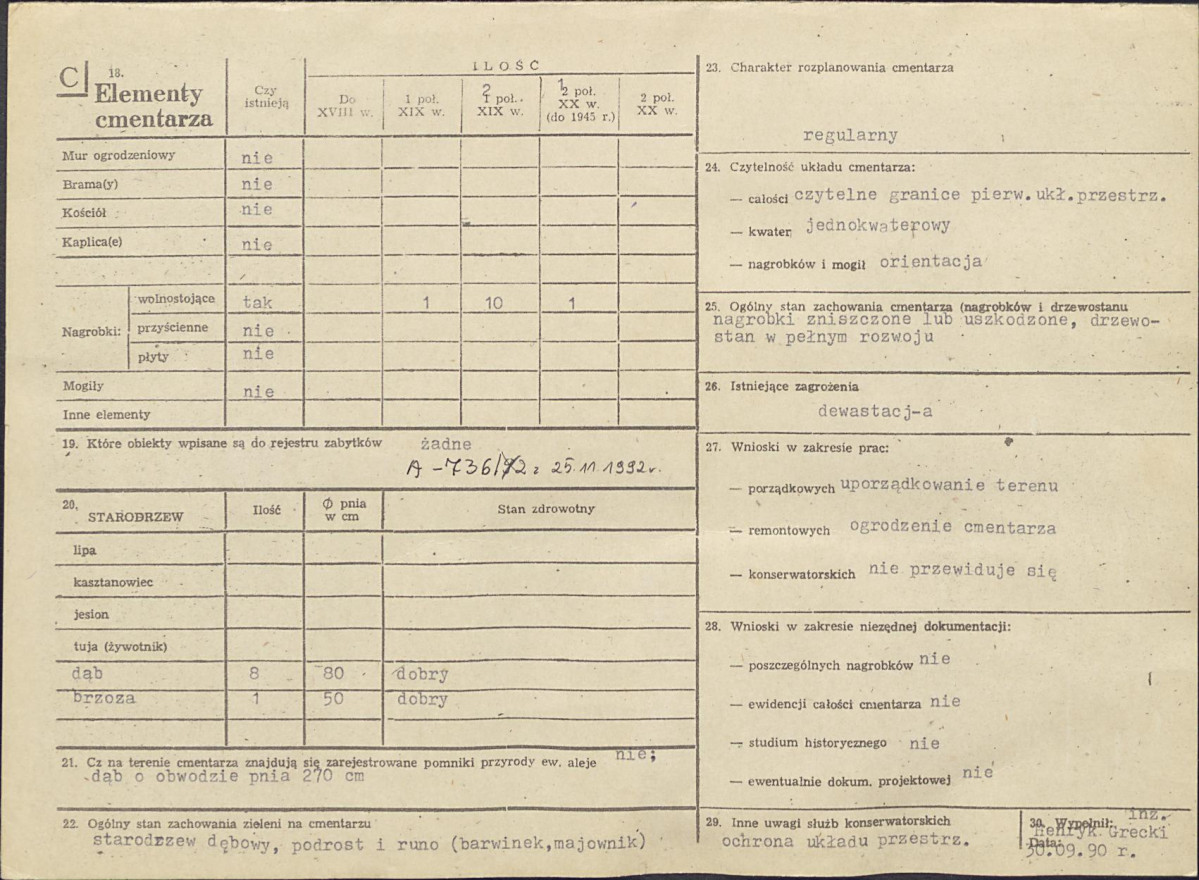 C
18. Elementy cmentarza
Czy istnieją
ILOŚC
Do XVIII w.
1 poł. XIX w.
2 1 poł. XIX w.
1 2 poł. XX w. (do 1945 r.)
2 poł. XX w.
Mur ogrodzeniowy nie
Brama(y) nie
Kościół nie
Kaplica(e) nie
Nagrobki:
wolnostojące tak 1 10 1
przyścienne nie
płyty nie
Mogiły nie
Inne elementy
19. Które obiekty wpisane są do rejestru zabytków żadne
A-736/92 z 25.11.1992r.
20. STARODRZEW Ilość Ø pnia w cm Stan zdrowotny
lipa
kasztanowiec
jesion
tuja (żywotnik)
dąb 8 80 dobry
brzoza 1 50 dobry
21. Cz na terenie cmentarza znajdują się zarejestrowane pomniki przyrody ew. aleje nie;
dąb o obwodzie pnia 270 cm
22. Ogólny stan zachowania zieleni na cmentarzu
starodrzew dębowy, podrost i runo (barwinek,majownik)
23. Charakter rozplanowania cmentarza
regularny
24. Czytelność układu cmentarza:
— całości czytelne granice pierw.ukł.przestrz.
— kwater jednokwaterowy
— nagrobków i mogił orientacja
25. Ogólny stan zachowania cmentarza (nagrobków i drzewostanu
nagrobki zniszczone lub uszkodzone, drzewo-
stan w pełnym rozwoju
26. Istniejące zagrożenia
dewastacj-a
27. Wnioski w zakresie prac:
— porządkowych uporządkowanie terenu
— remontowych ogrodzenie cmentarza
— konserwatorskich nie przewiduje się
28. Wnioski w zakresie niezędnej dokumentacji:
— poszczególnych nagrobków nie
— ewidencji całości cmentarza nie
— studium historycznego nie
— ewentualnie dokum. projektowej nie
29. Inne uwagi służb konserwatorskich
ochrona układu przestrz.
30. Wypełnił: inż.
Henryk Grecki
Data:
30.09.90 r.